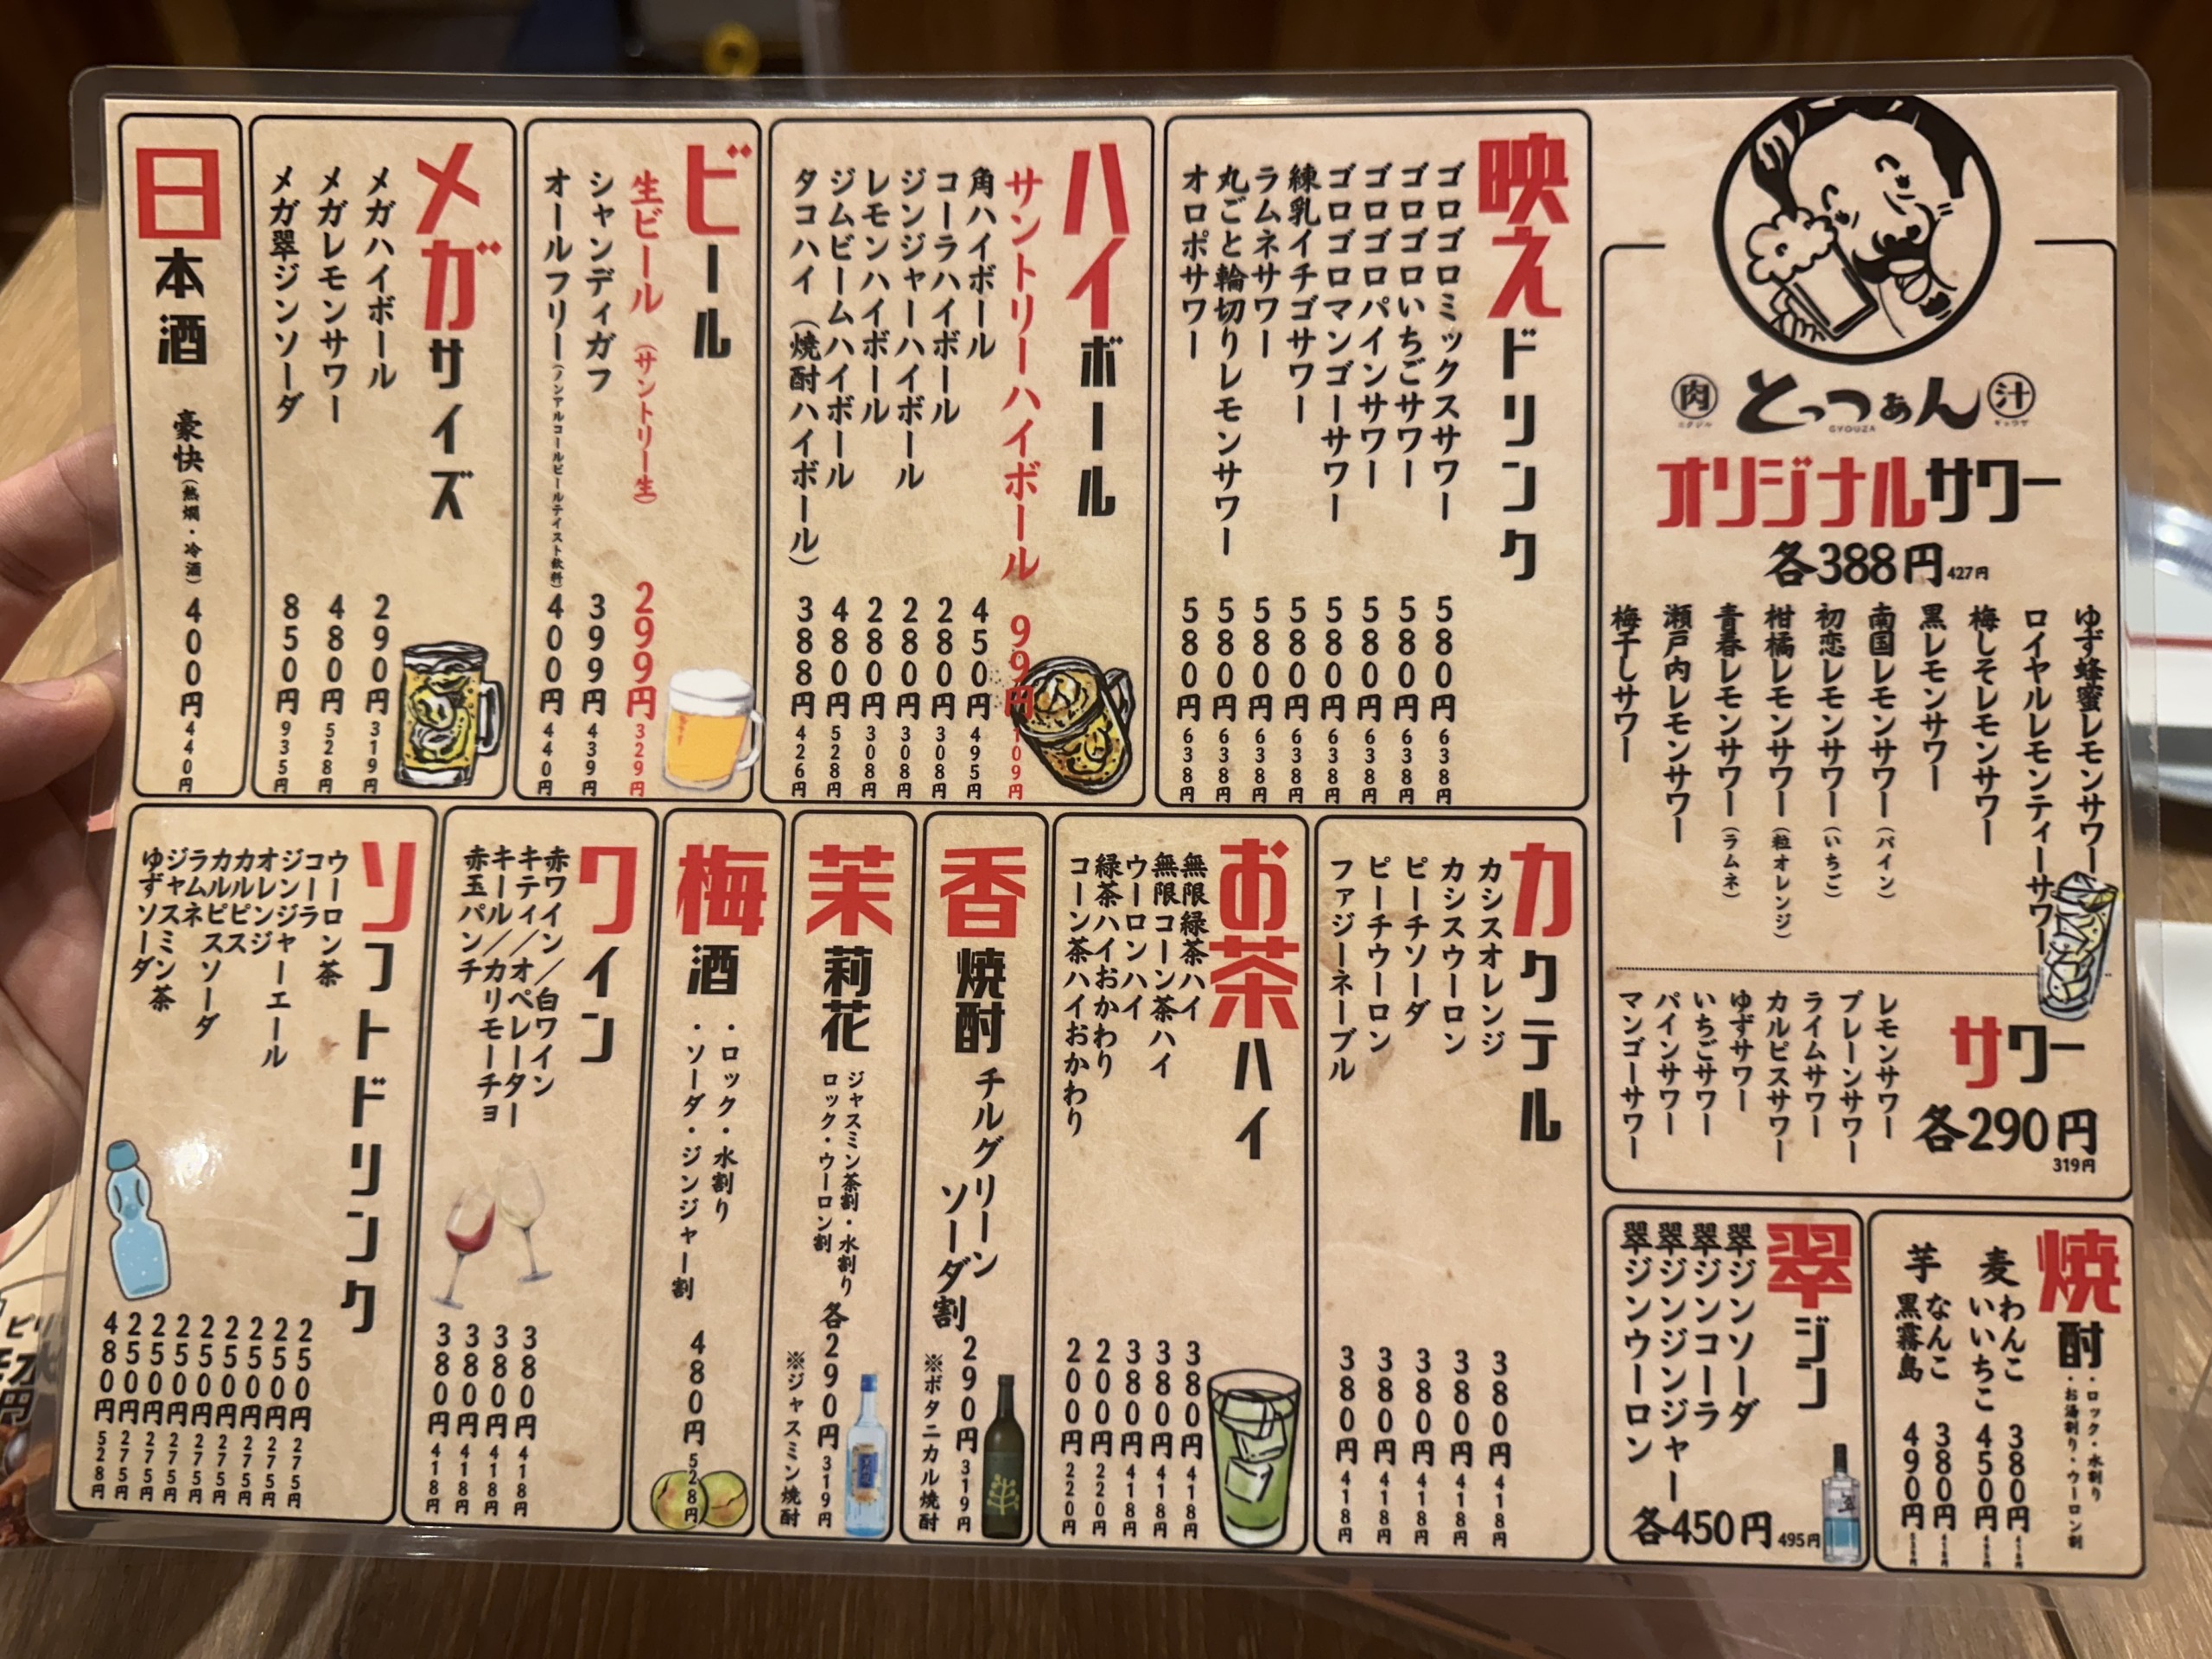 肉 とっつぁん 汁
GYOUZA
オリジナルサワー
各388円 427円
ゆず蜂蜜レモンサワー
ロイヤルレモンティーサワー
梅しそレモンサワー
黒レモンサワー
南国レモンサワー(パイン)
初恋レモンサワー(いちご)
柑橘レモンサワー(粒オレンジ)
青春レモンサワー(ラムネ)
瀬戸内レモンサワー
梅干しサワー
サワー
各290円
319円
レモンサワー
プレーンサワー
ライムサワー
カルピスサワー
ゆずサワー
いちごサワー
パインサワー
マンゴーサワー
焼酎 ・ロック・水割り
・お湯割り・ウーロン割
麦 わんこ 380円
いいちこ 450円
芋 なんこ 380円
黒霧島 490円
翠ジン
翠ジンソーダ
翠ジンコーラ
翠ジンジンジャー
翠ジンウーロン
各450円 495円
映えドリンク
ゴロゴロミックスサワー 580円 638円
ゴロゴロいちごサワー 580円 638円
ゴロゴロパインサワー 580円 638円
ゴロゴロマンゴーサワー 580円 638円
練乳イチゴサワー 580円 638円
ラムネサワー 580円 638円
丸ごと輪切りレモンサワー 580円 638円
オロポサワー 580円 638円
ハイボール
サントリーハイボール 99円 109円
角ハイボール 450円 495円
コーラハイボール 280円 308円
ジンジャーハイボール 280円 308円
レモンハイボール 280円 308円
ジムビームハイボール 480円 528円
タコハイ(焼酎ハイボール) 388円 426円
ビール
生ビール(サントリー生) 299円 329円
シャンディガフ 399円 439円
オールフリー(ノンアルコールビールテイスト飲料) 400円 440円
メガサイズ
メガハイボール 290円 319円
メガレモンサワー 480円 528円
メガ翠ジンソーダ 850円 935円
日本酒 豪快(熱燗・冷酒) 400円 440円
カクテル
カシスオレンジ 380円 418円
カシスウーロン 380円 418円
ピーチソーダ 380円 418円
ピーチウーロン 380円 418円
ファジーネーブル 380円 418円
お茶ハイ
無限緑茶ハイ 380円 418円
無限コーン茶ハイ 380円 418円
ウーロンハイ 380円 418円
緑茶ハイおかわり 200円 220円
コーン茶ハイおかわり 200円 220円
香焼酎 チルグリーン
ソーダ割 290円 319円
※ボタニカル焼酎
茉莉花 ジャスミン茶割・水割り
ロック・ウーロン割 各290円 319円
※ジャスミン焼酎
梅酒 ・ロック・水割り
・ソーダ・ジンジャー割 480円 528円
ワイン
赤ワイン/白ワイン 380円 418円
キティ/オペレーター 380円 418円
キール/カリモーチョ 380円 418円
赤玉パンチ 380円 418円
ソフトドリンク
ウーロン茶 250円 275円
コーラ 250円 275円
ジンジャーエール 250円 275円
オレンジ 250円 275円
カルピス 250円 275円
カルピスソーダ 250円 275円
ラムネ 250円 275円
ジャスミン茶 250円 275円
ゆずソーダ 480円 528円